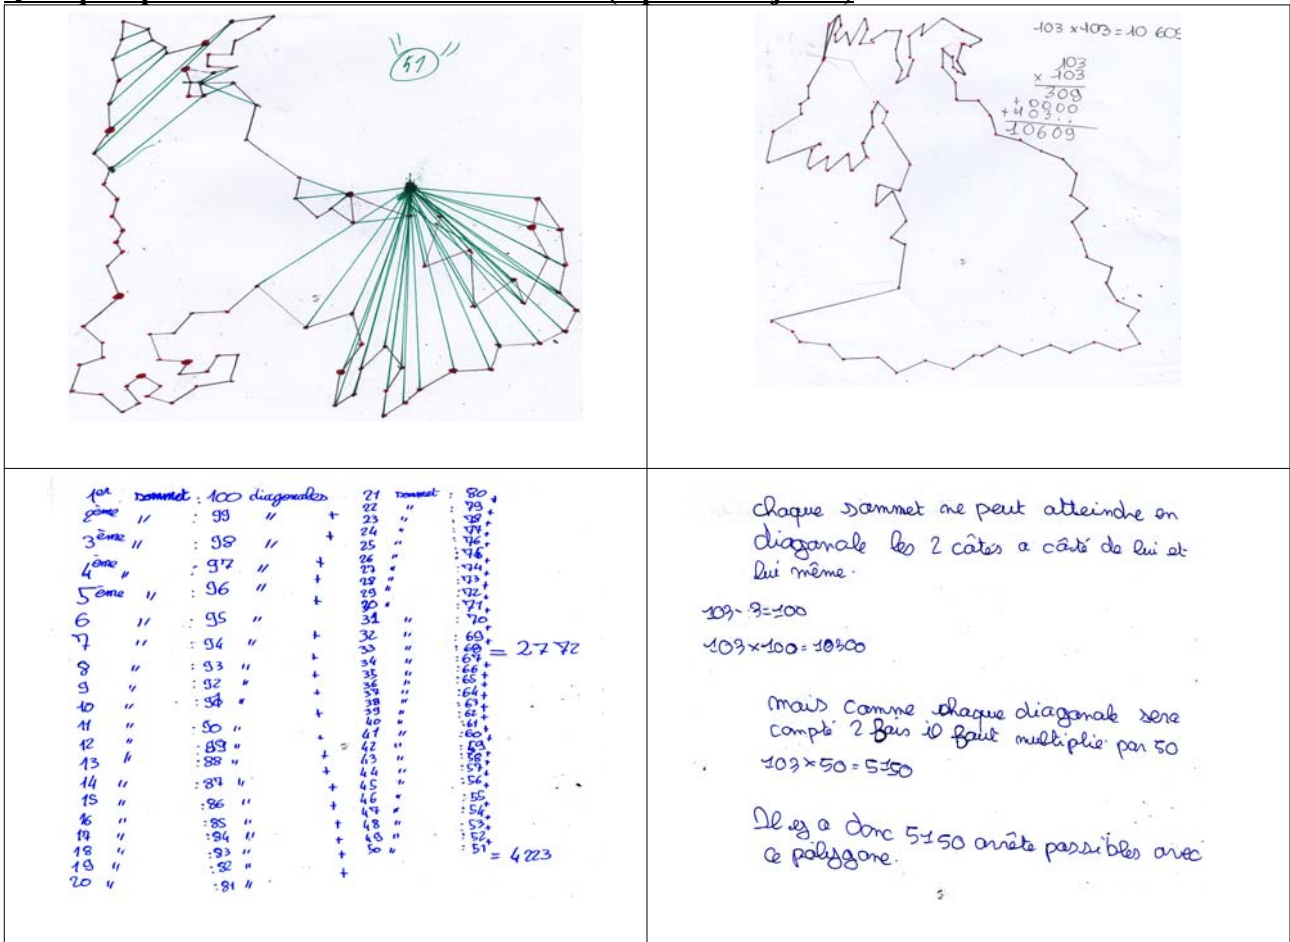 51
103 x 103 = 10 609
103
x 103
309
+ 0000
+ 103..
10609
1er sommet : 100 diagonales
2ème " : 99 " +
3ème " : 98 " +
4ème " : 97 " +
5ème " : 96 " +
6 " : 95 " +
7 " : 94 " +
8 " : 93 " +
9 " : 92 " +
10 " : 91 " +
11 " : 90 " +
12 " : 89 " +
13 " : 88 " +
14 " : 87 " +
15 " : 86 " +
16 " : 85 " +
17 " : 84 " +
18 " : 83 " +
19 " : 82 " +
20 " : 81 "
21 sommet : 80 +
22 " : 79 +
23 " : 78 +
24 " : 77 +
25 " : 76 +
26 " : 75 +
27 " : 74 +
28 " : 73 +
29 " : 72 +
30 " : 71 +
31 " : 70 +
32 " : 69 +
33 " : 68 + = 2772
34 " : 67 +
35 " : 66 +
36 " : 65 +
37 " : 64 +
38 " : 63 +
39 " : 62 +
40 " : 61 +
41 " : 60 +
42 " : 59 +
43 " : 58 +
44 " : 57 +
45 " : 56 +
46 " : 55 +
47 " : 54 +
48 " : 53 +
49 " : 52 +
50 " : 51 = 4223
chaque sommet ne peut atteindre en
diagonale les 2 côtés a côté de lui et
lui même.
103 - 3 = 100
103 x 100 = 10300
mais comme chaque diagonale sera
compté 2 fois il faut multiplié par 50
103 x 50 = 5150
Il y a donc 5150 arrête possibles avec
ce polygone.